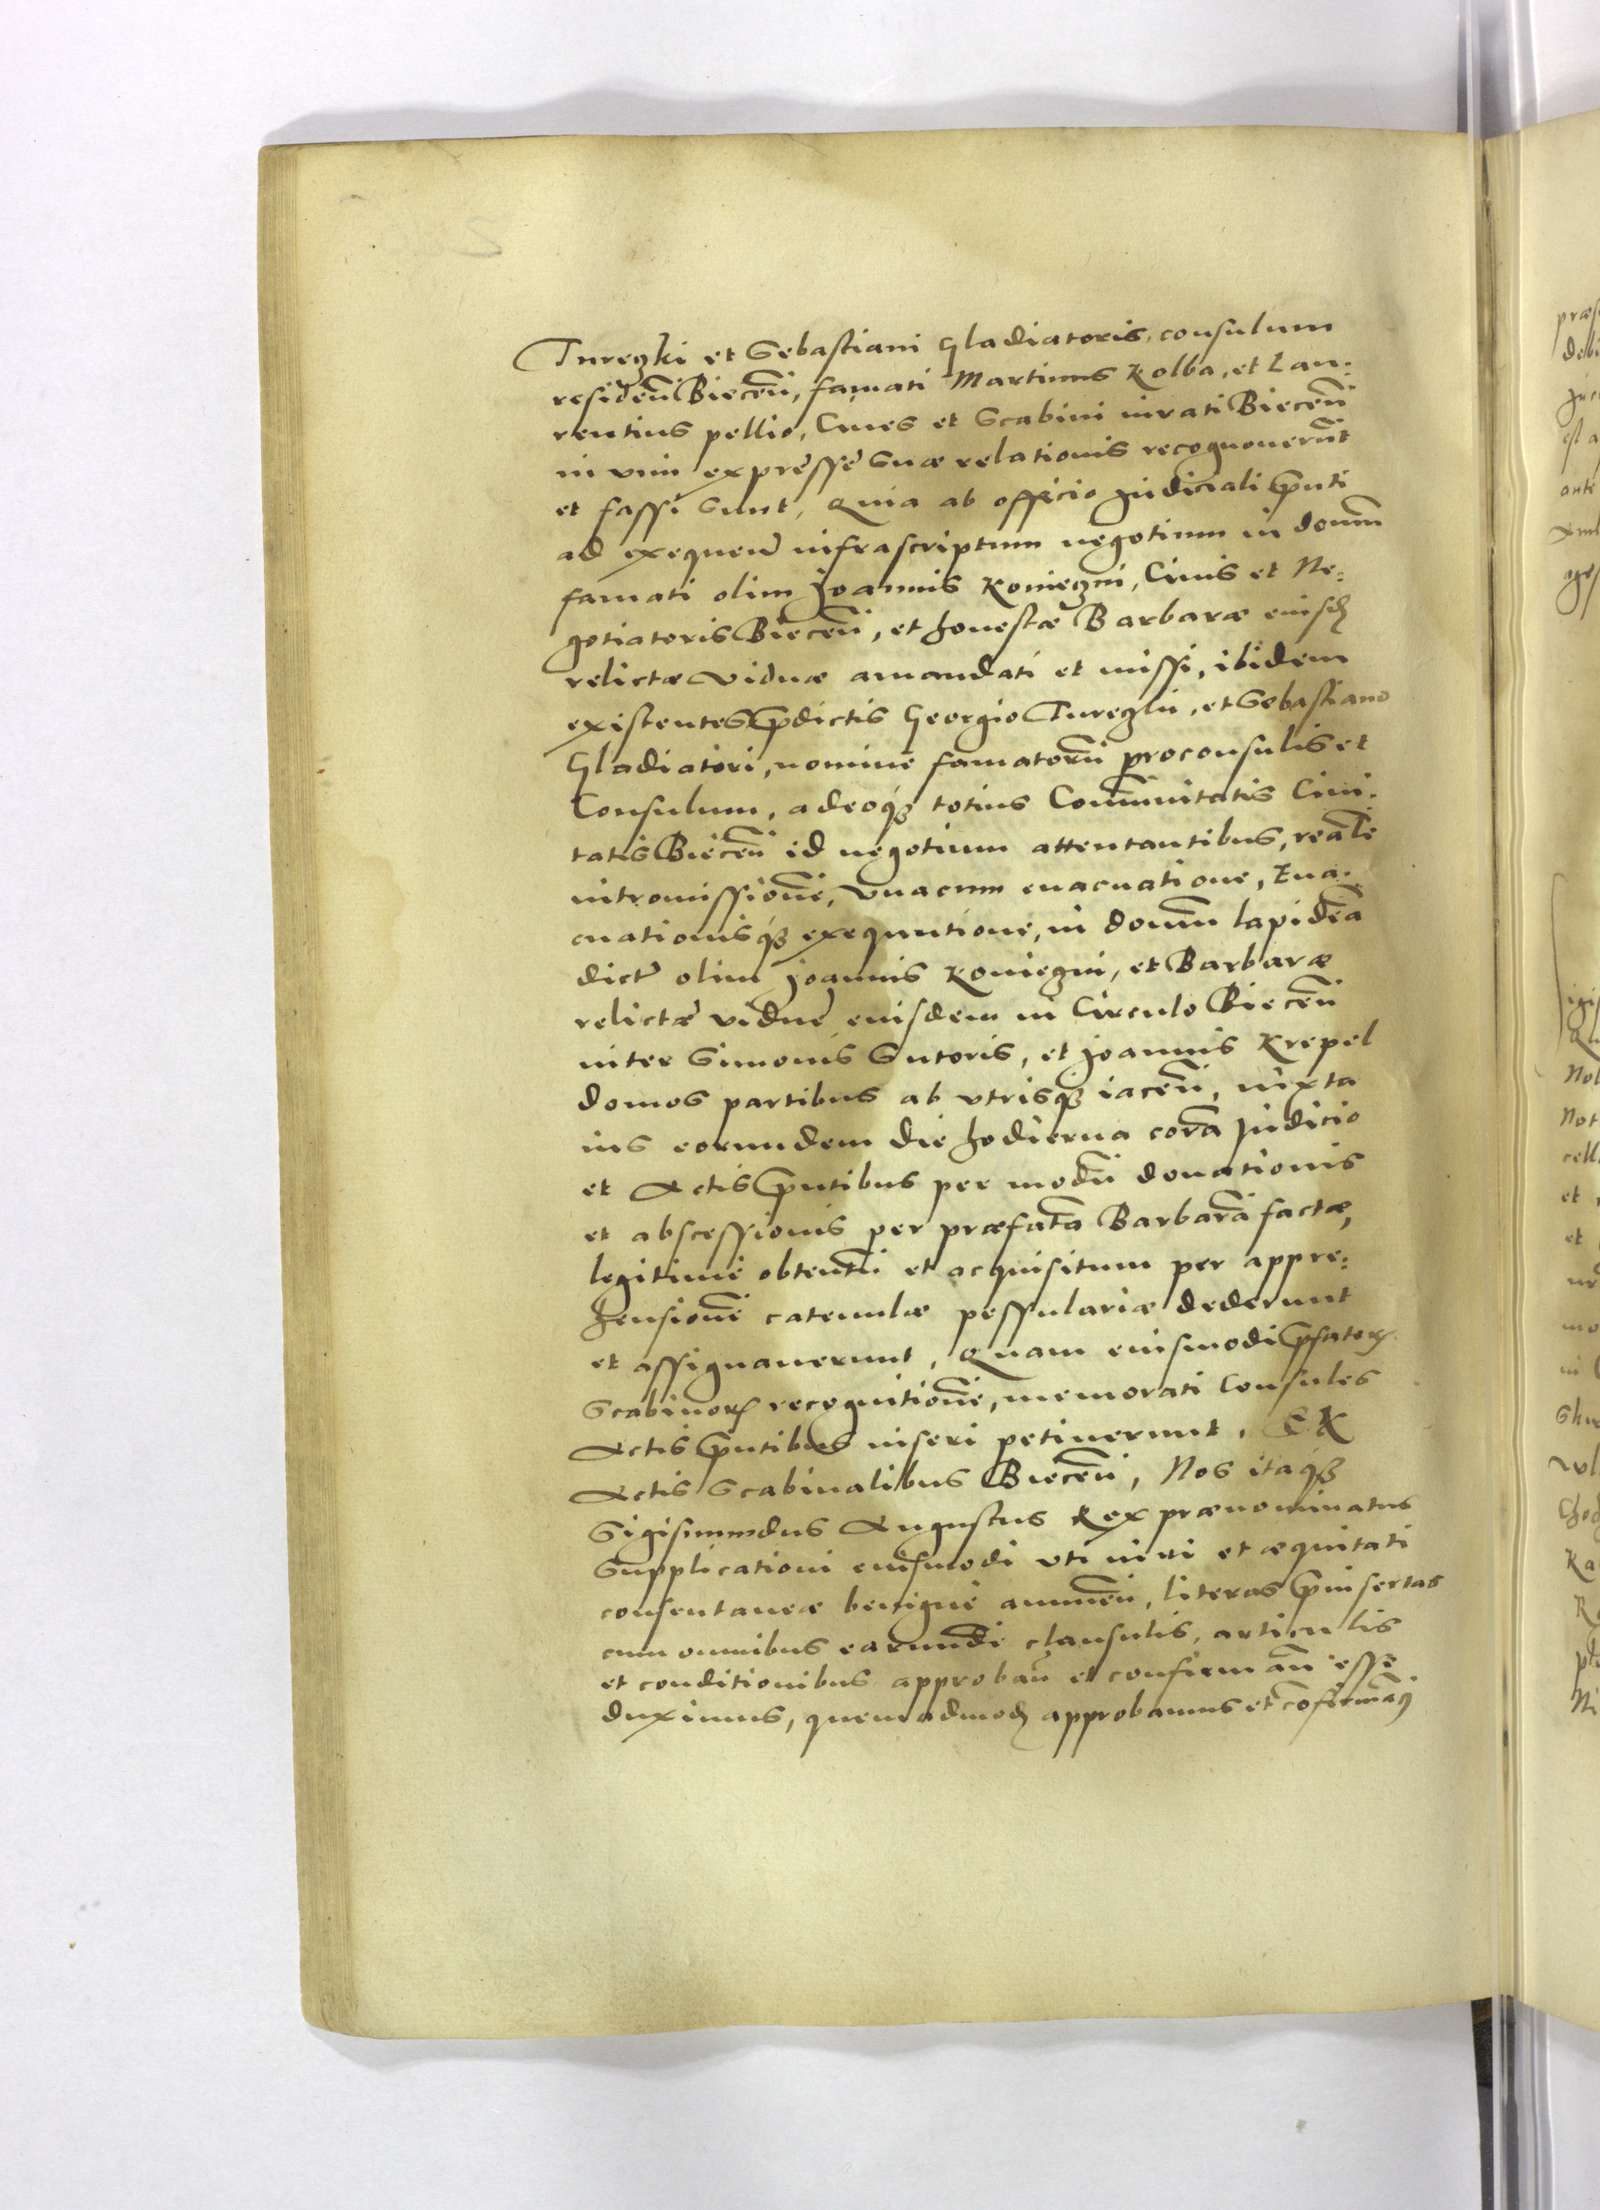 Tureczki et Sebastiani Gladiatoris, consulum
residen̄ Biecen̄, famati Martinus Kolba, et Lau-
rentius pellio, Ciues et Scabini iurati Biecen̄
in vim expressè suæ relationis recognouerūt
et fassi sunt, Quia ab officio Judiciali p̄nti
ad exequen̄ infrascriptum negotium in domū
famati olim Joannis Konieczni, Ciuis et Ne-
gotiatoris Biecen̄, et honestæ Barbaræ eiusd
relictæ viduæ amandati et missi, ibidem
existentes p̄dictis Georgio Tureczki, et Sebastiano
Gladiatori, nomine famatorū proconsulis et
Consulum, adeoq₃ totius Com̄unitatis Ciui-
tatis Biecen̄ id negotium attentantibus, realē
intromissionē, vnacum euacuatione, Eua-
cuationisq₃ exequutione, in domū lapideā
dict olim Joannis Konieczni, et Barbaræ
relictæ viduæ eiusdem in Circulo Biecen̄
inter Simonis Sutoris, et Joannis Krepel
domos partibus ab vtrisq₃ iacen̄, iuxta
ius eorundem die hodierna corā Judicio
et Actis p̄ntibus per modū donationis
et abscessionis per præfatā Barbarā factæ,
legitimè obtentū et acquisitum per appre-
hensionē catenulæ pessulariæ dederunt
et assignauerunt, Quam eiusmodi p̄fatoꝝ
Scabinoꝝ recognitionē, memorati Consules
Actis p̄ntibus inseri petiuerunt, Ex
Actis Scabinalibus Biecen̄, Nos itaq₃
Sigismundus Augustus Rex prænominatus
Supplicationi eiusmodi vti iuri et æquitati
consentaneæ benignè annuen̄, literas p̄insertas
cum omnibus earundē clausulis, articulis
et conditionibus approban̄ et confirman̄ esse
duximus, quemadmod approbamus et cōfirmam9